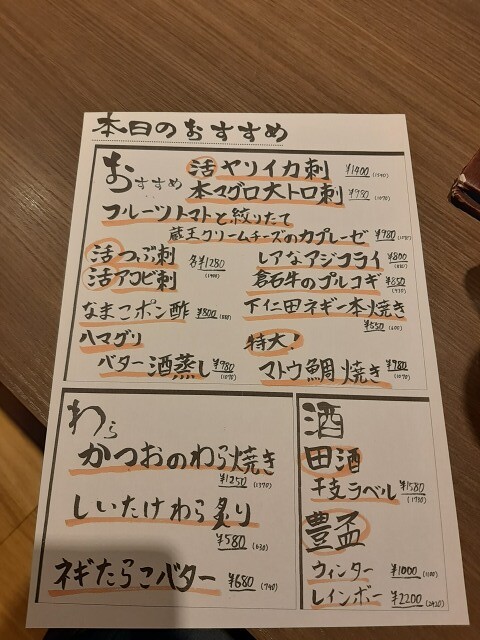 本日のおすすめ
おすすめ
活ヤリイカ刺 ¥1400 (1540)
本マグロ大トロ刺 ¥980 (1070)
フルーツトマトと絞りたて
蔵王クリームチーズのカプレーゼ ¥980 (1070)
活つぶ刺
活アコビ刺
各¥1280 (1400)
レアなアジフライ ¥800 (880)
倉石牛のプルコギ ¥850 (930)
なまこポン酢 ¥800 (880)
下仁田ネギ一本焼き ¥550 (600)
ハマグリ
バター酒蒸し ¥980 (1070)
特大!
マトウ鯛焼き ¥980 (1070)
わら
かつおのわら焼き
¥1250 (1370)
しいたけわら炙り
¥580 (630)
ネギたらこバター ¥680 (740)
酒
田酒
干支ラベル
¥1580 (1730)
豊盃
ウィンター ¥1000 (1100)
レインボー ¥2200 (2420)